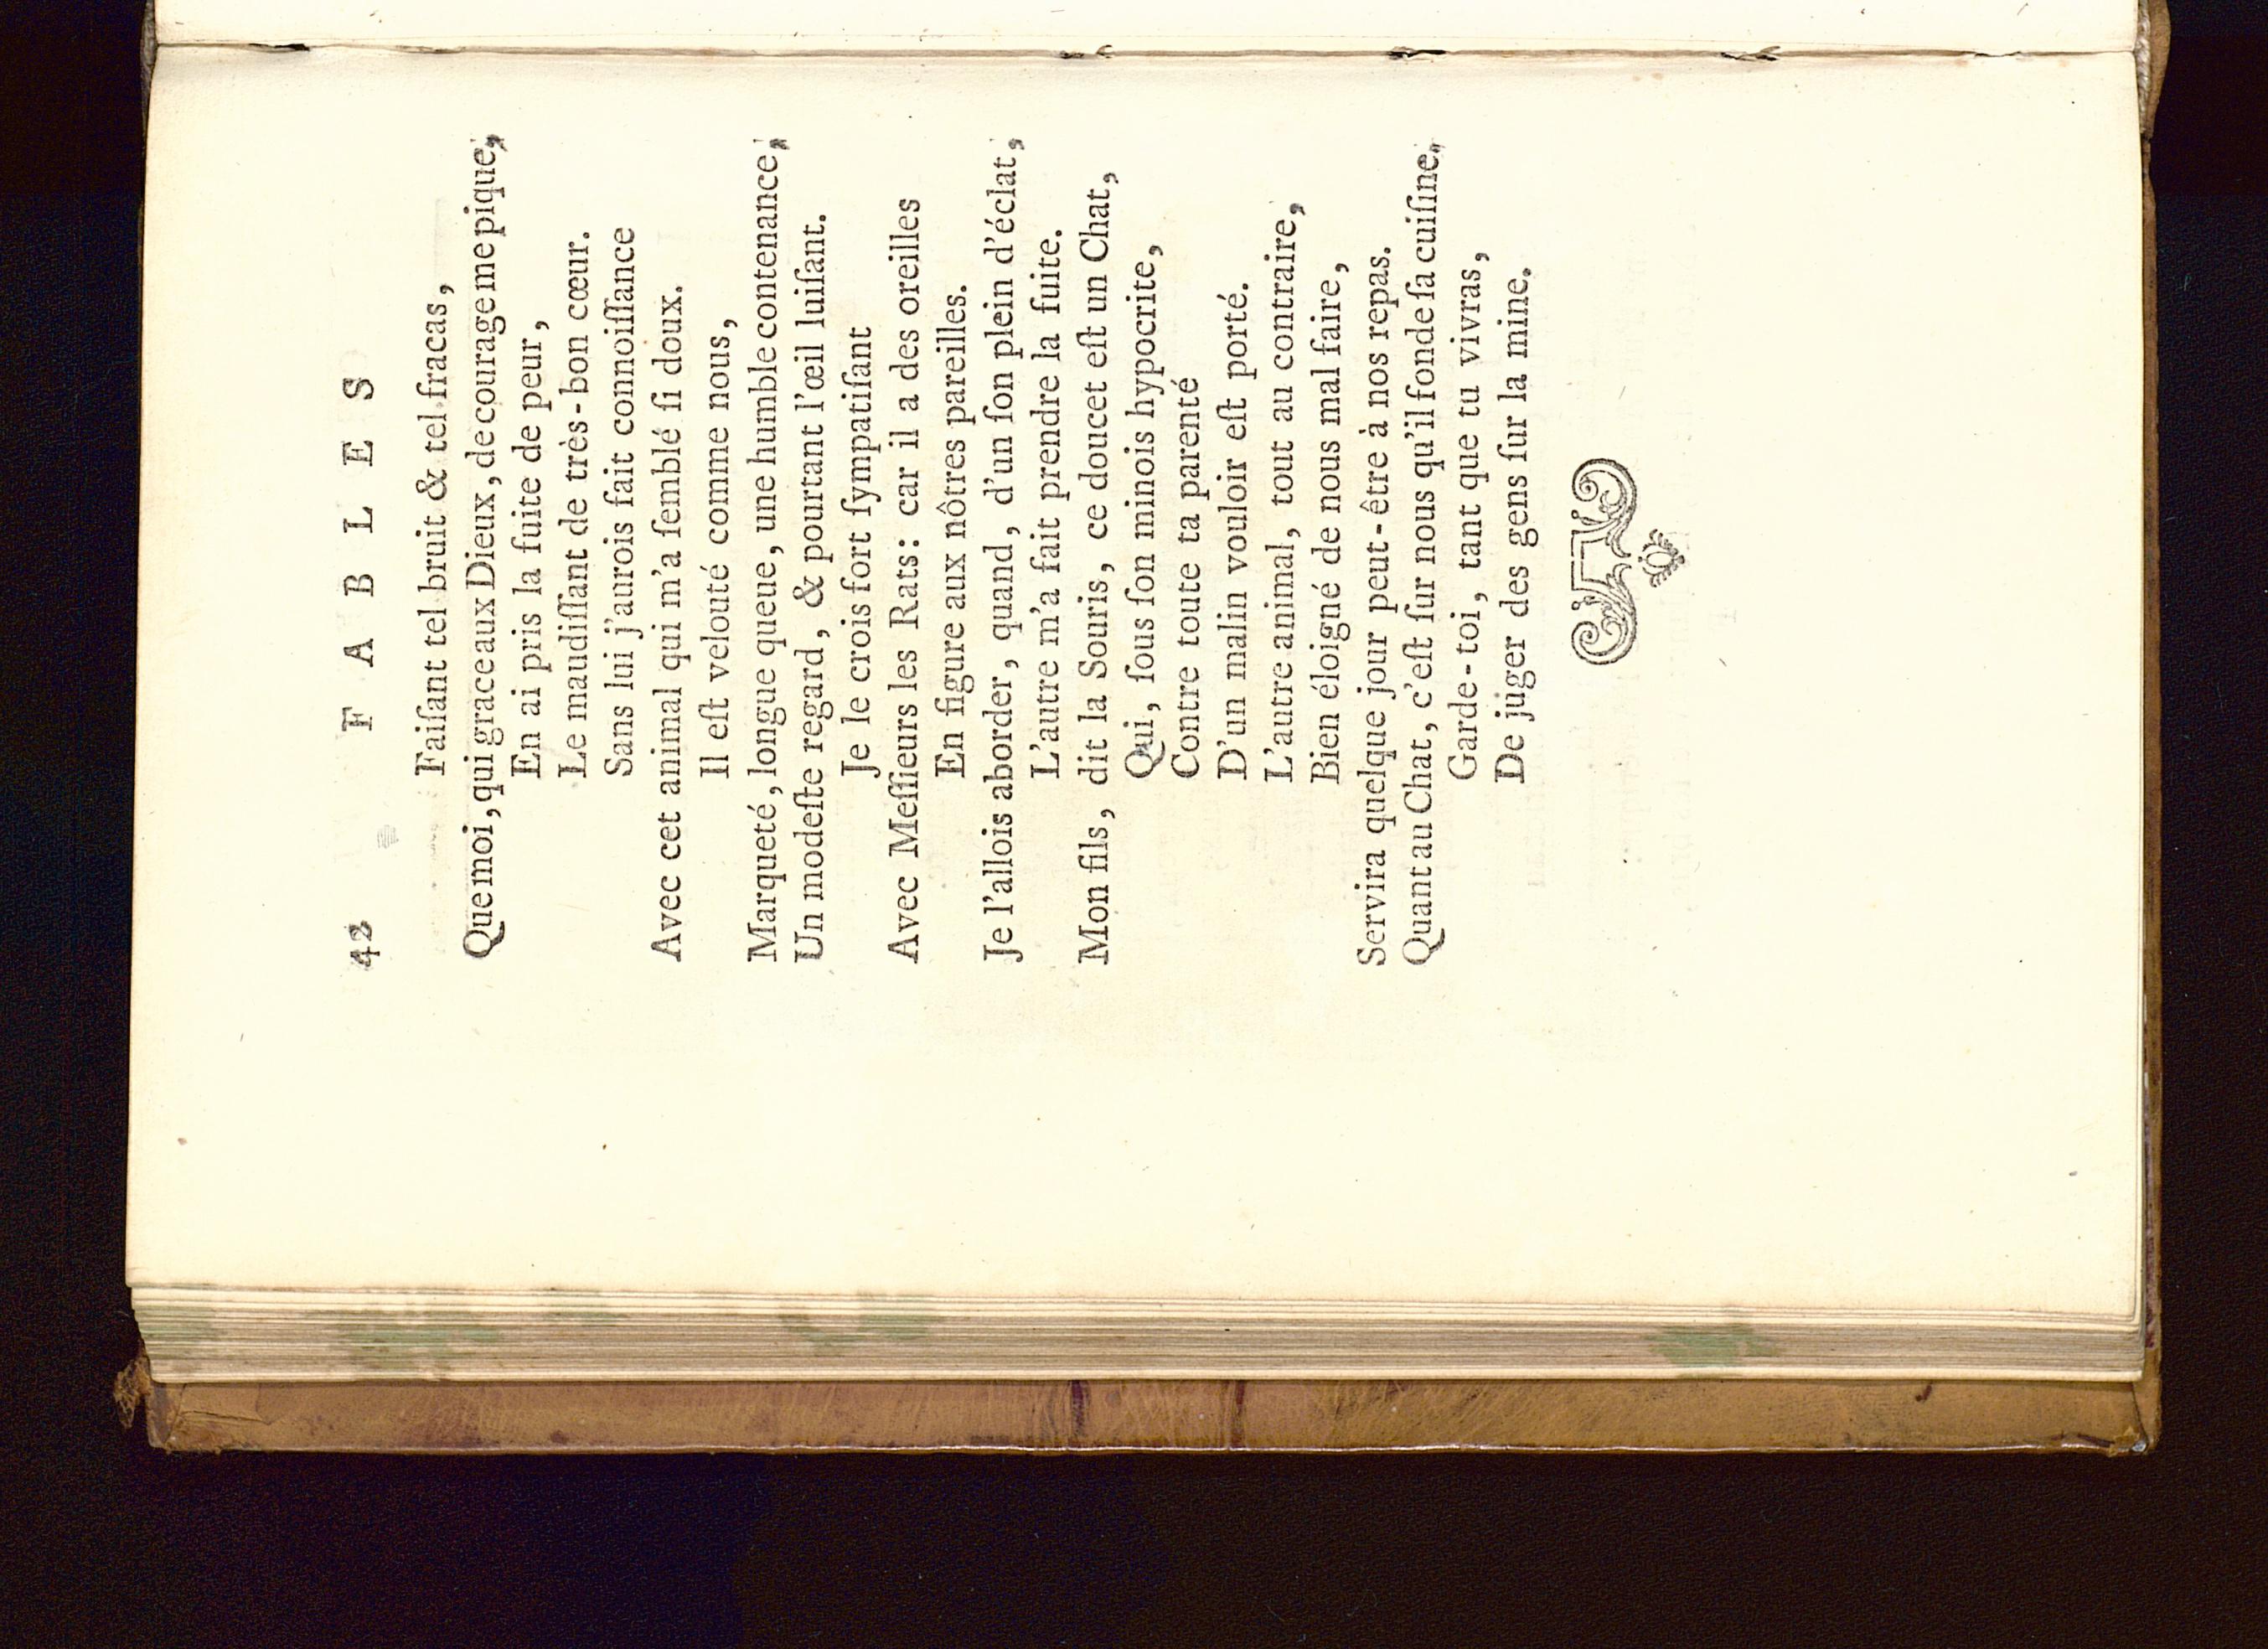 42 FABLES
Faiſant tel bruit & tel fracas,
Que moi, qui grace aux Dieux, de courage me pique,
En ai pris la fuite de peur,
Le maudiſſant de très-bon cœur.
Sans lui j'aurois fait connoiſſance
Avec cet animal qui m'a ſemblé ſi doux.
Il eſt velouté comme nous,
Marqueté, longue queue, une humble contenance;
Un modeſte regard, & pourtant l'œil luiſant.
Je le crois fort ſympatiſant
Avec Meſſieurs les Rats: car il a des oreilles
En figure aux nôtres pareilles.
Je l'allois aborder, quand, d'un ſon plein d'éclat,
L'autre m'a fait prendre la fuite.
Mon fils, dit la Souris, ce doucet eſt un Chat,
Qui, ſous ſon minois hypocrite,
Contre toute ta parenté
D'un malin vouloir eſt porté.
L'autre animal, tout au contraire,
Bien éloigné de nous mal faire,
Servira quelque jour peut-être à nos repas.
Quant au Chat, c'eſt ſur nous qu'il fonde ſa cuiſine.
Garde-toi, tant que tu vivras,
De juger des gens ſur la mine.